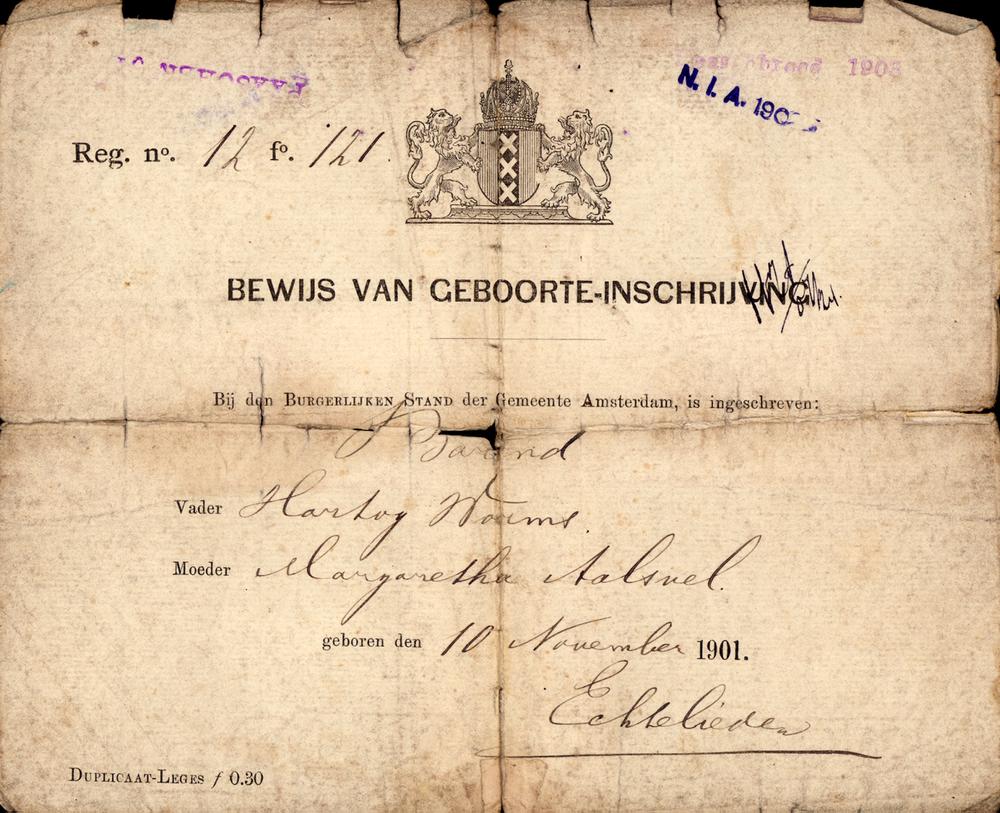 1903
N. I. A. 190
Reg. nº. 12 fº. 121.
BEWIJS VAN GEBOORTE-INSCHRIJVING.
Bij den BURGERLIJKEN STAND der Gemeente Amsterdam, is ingeschreven:
Barend
Vader Hartog Worms.
Moeder Margaretha Aalsvel.
geboren den 10 November 1901.
Echtelieden
DUPLICAAT-LEGES ƒ 0.30